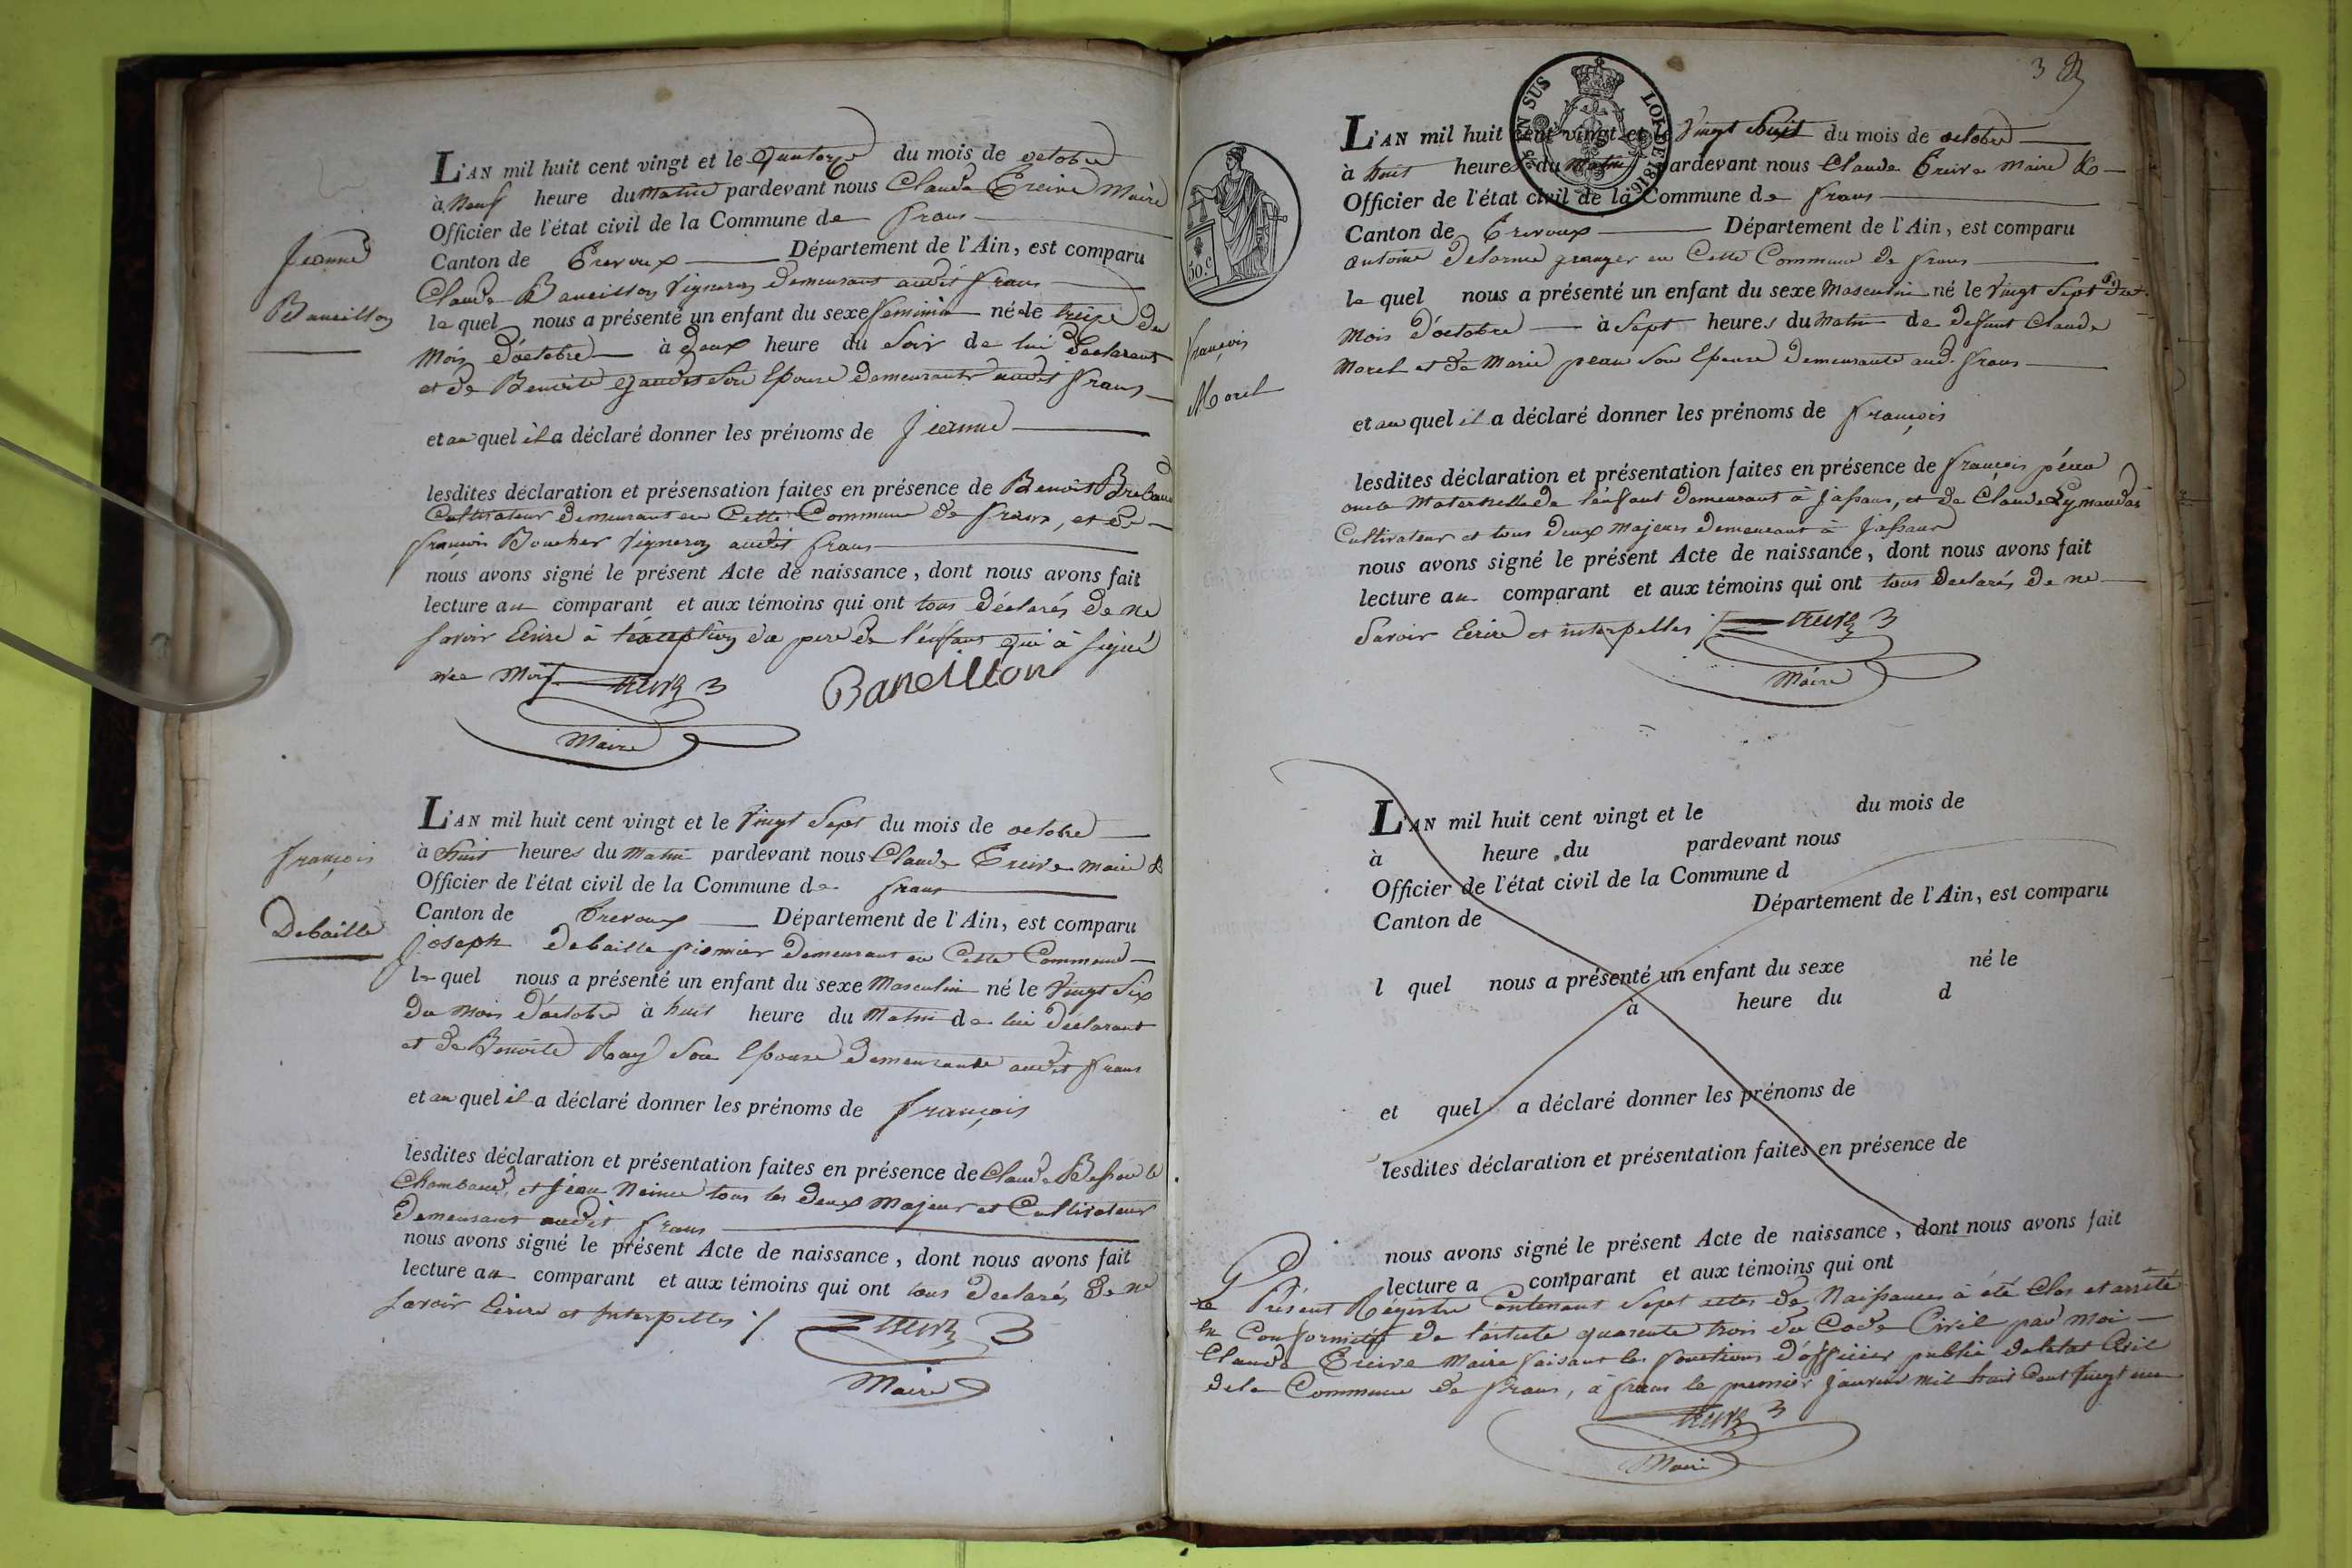 L'AN mil huit cent vingt et le quatorze du mois de octobre
à Neuf heure du Matin pardevant nous Claude Treive Maire
Officier de l'état civil de la Commune de frans
Canton de Trevoux Département de l'Ain, est comparu
Claude Baneillon Vigneron demeurant audit frans
le quel nous a présenté un enfant du sexe feminin né le treize du
Mois d'octobre à deux heure du Soir de lui Déclarant
et de Benoite Son Epouse demeurante audit frans
et au quel il a déclaré donner les prénoms de Jeanne
lesdites déclaration et présensation faites en présence de Benoit
Cultivateur demeurant en Cette Commune de frans, et de
françois Boucher Vigneron audit frans
nous avons signé le présent Acte de naissance, dont nous avons fait
lecture au comparant et aux témoins qui ont tous déclarés de ne
savoir Ecrire à l'éxception du pere de l'enfant qui à signé
avec Moi
Treive
Baneillon
Maire
Jeanne
Baneillon
L'AN mil huit cent vingt et le Vingt Sept du mois de octobre
à huit heures du Matin pardevant nous Claude Treive maire &
Officier de l'état civil de la Commune de frans
Canton de Trevoux Département de l'Ain, est comparu
joseph debaille demeurant en Cette Commune
le quel nous a présenté un enfant du sexe Masculin né le Vingt Six
du Mois d'octobre à huit heure du Matin de lui déclarant
et de Benoite Ray Son Epouse demeurante audit frans
et au quel il a déclaré donner les prénoms de françois
lesdites déclaration et présentation faites en présence de Claude
et Jean tous les deux Majeur et Cultivateur
demeurant audit frans
nous avons signé le présent Acte de naissance, dont nous avons fait
lecture au comparant et aux témoins qui ont tous declarés de ne
savoir Ecrire et Interpelles
Treive
Maire
françois
Debaille
3
SUS
LOI DE 1816
50.c
L'AN mil huit cent vingt et le Vingt huit du mois de octobre
à huit heures du Matin pardevant nous Claude Treive Maire &
Officier de l'état civil de la Commune de frans
Canton de Trevoux Département de l'Ain, est comparu
antoine Delorme granger en Cette Commune de frans
le quel nous a présenté un enfant du sexe Masculin né le Vingt Sept dud.
Mois d'octobre à Sept heures du Matin de defunt Claude
Morel et de Marie peau Son Epouse demeurante aud. frans
et au quel il a déclaré donner les prénoms de françois
lesdites déclaration et présentation faites en présence de françois
oncle Maternelle de l'énfant demeurant à jassans, et de Claude
Cultivateur et tous deux Majeurs demeurant à jassans
nous avons signé le présent Acte de naissance, dont nous avons fait
lecture au comparant et aux témoins qui ont tous declarés de ne
Savoir Ecrire et interpelles
Treive
Maire
françois
Morel
L'AN mil huit cent vingt et le du mois de
à heure du pardevant nous
Officier de l'état civil de la Commune d
Canton de Département de l'Ain, est comparu
l quel nous a présenté un enfant du sexe né le
à heure du d
et quel a déclaré donner les prénoms de
lesdites déclaration et présentation faites en présence de
nous avons signé le présent Acte de naissance, dont nous avons fait
lecture a comparant et aux témoins qui ont
Le Présent Régistre Contenant Sept actes de Naissances à été Clos et arrêté
en Conformité de l'article quarente trois du Code Civil par moi
Claude Treive Maire faisant les fonctions d'officier public de l'etat Civil
de la Commune de frans, à frans le premier janvier mil huit Cent Vingt un
Treive
Maire